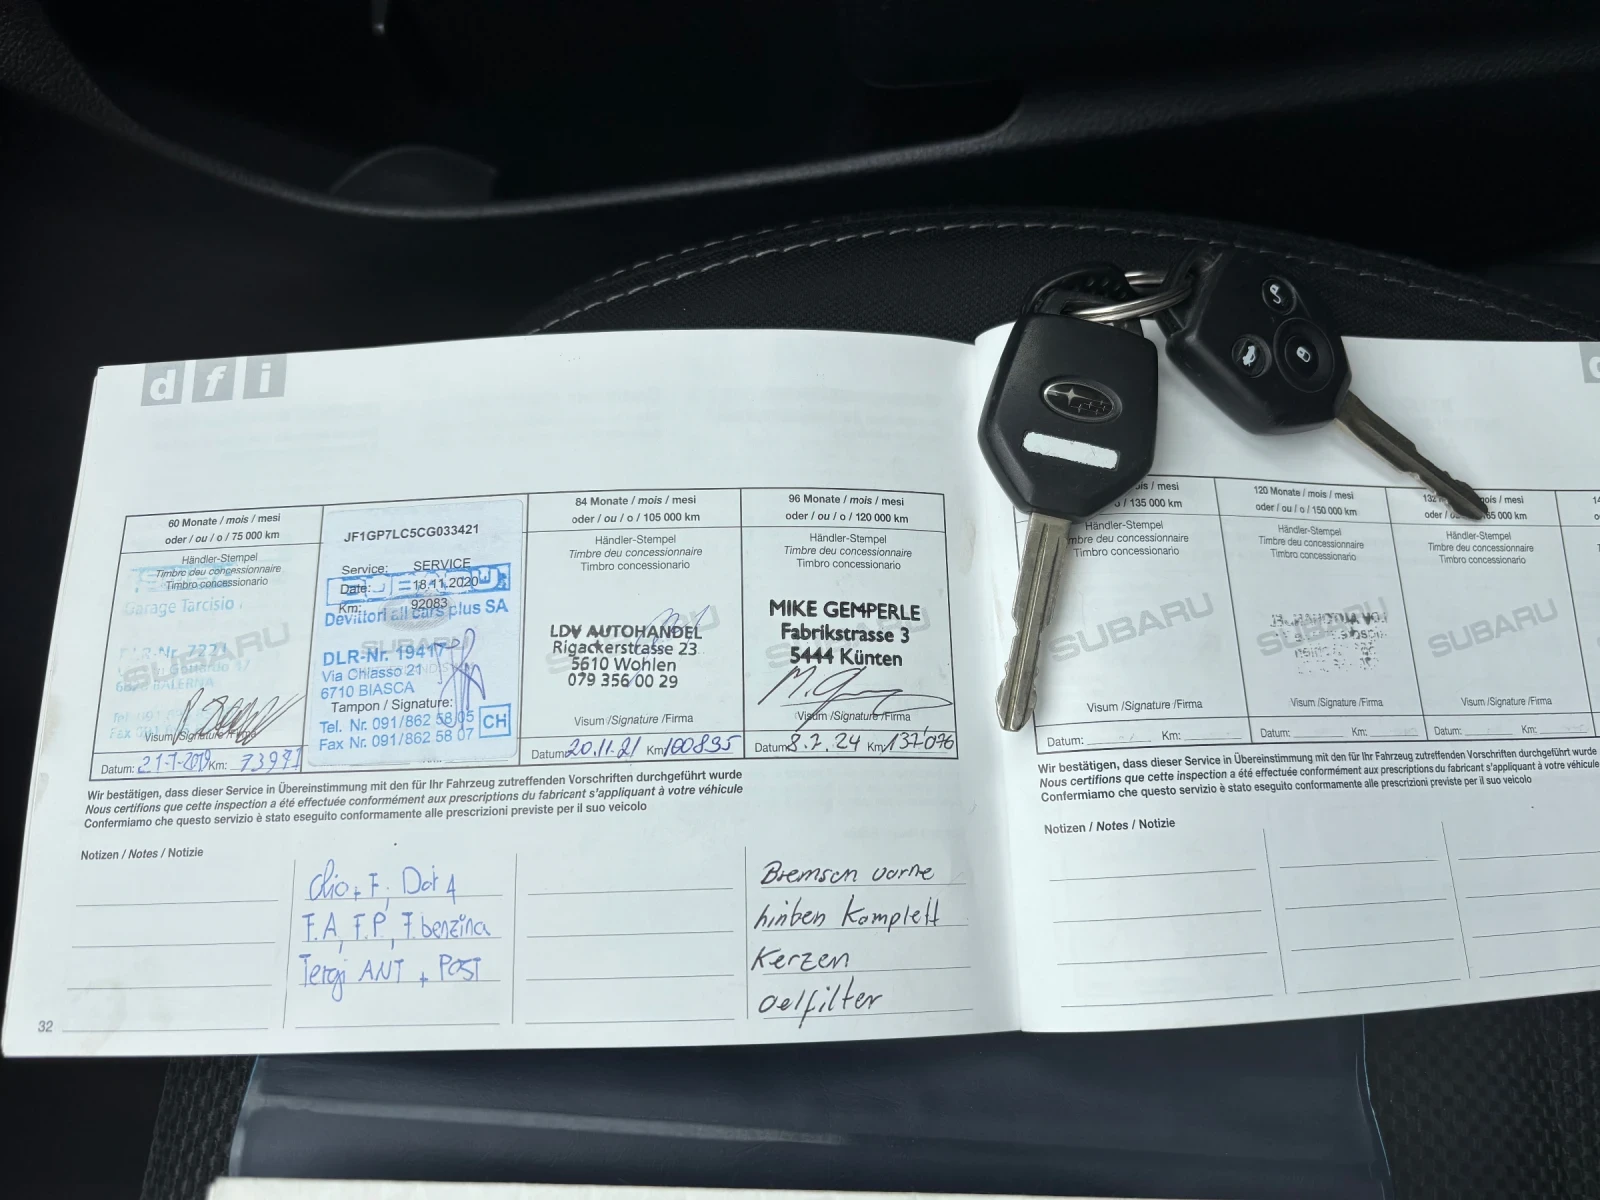 d f i
60 Monate / mois / mesi
oder / ou / o / 75 000 km
Händler-Stempel
Timbre deu concessionnaire
Timbro concessionario
Garage Tarcisio
SUBARU
Visum /Signature /Firma
Datum: 21-7-2019 Km: 73971
JF1GP7LC5CG033421
Service: SERVICE
Date: 18.11.2020
Km: 92083
Devittori all cars plus SA
SUBARU
DLR-Nr. 19417
Via Chiasso 21
6710 BIASCA
Tampon / Signature:
Tel. Nr. 091/862 58 05
Fax Nr. 091/862 58 07
CH
84 Monate / mois / mesi
oder / ou / o / 105 000 km
Händler-Stempel
Timbre deu concessionnaire
Timbro concessionario
LDV AUTOHANDEL
Rigackerstrasse 23
5610 Wohlen
079 356 00 29
Visum /Signature /Firma
Datum: 20.11.21 Km: 100895
96 Monate / mois / mesi
oder / ou / o / 120 000 km
Händler-Stempel
Timbre deu concessionnaire
Timbro concessionario
MIKE GEMPERLE
Fabrikstrasse 3
5444 Künten
Visum /Signature /Firma
Datum: 8.7.24 Km: 137076
Wir bestätigen, dass dieser Service in Übereinstimmung mit den für Ihr Fahrzeug zutreffenden Vorschriften durchgeführt wurde
Nous certifions que cette inspection a été effectuée conformément aux prescriptions du fabricant s'appliquant à votre véhicule
Confermiamo che questo servizio è stato eseguito conformamente alle prescrizioni previste per il suo veicolo
Notizen / Notes / Notizie
Olio + F, Dot 4
F.A, F.P, F. benzina
Tergi ANT + POST
Bremsen vorne
hinben Komplett
Kerzen
Oelfilter
32
/ 135 000 km
Händler-Stempel
Timbre deu concessionnaire
Timbro concessionario
SUBARU
Visum /Signature /Firma
Datum: Km:
120 Monate / mois / mesi
oder / ou / o / 150 000 km
Händler-Stempel
Timbre deu concessionnaire
Timbro concessionario
SUBARU
Visum /Signature /Firma
Datum: Km:
oder /
Händler-Stempel
Timbre deu concessionnaire
Timbro concessionario
SUBARU
Visum /Signature /Firma
Datum: Km:
Wir bestätigen, dass dieser Service in Übereinstimmung mit den für Ihr Fahrzeug zutreffenden Vorschriften durchgeführt wurde
Nous certifions que cette inspection a été effectuée conformément aux prescriptions du fabricant s'appliquant à votre véhicule
Confermiamo che questo servizio è stato eseguito conformamente alle prescrizioni previste per il suo veicolo
Notizen / Notes / Notizie